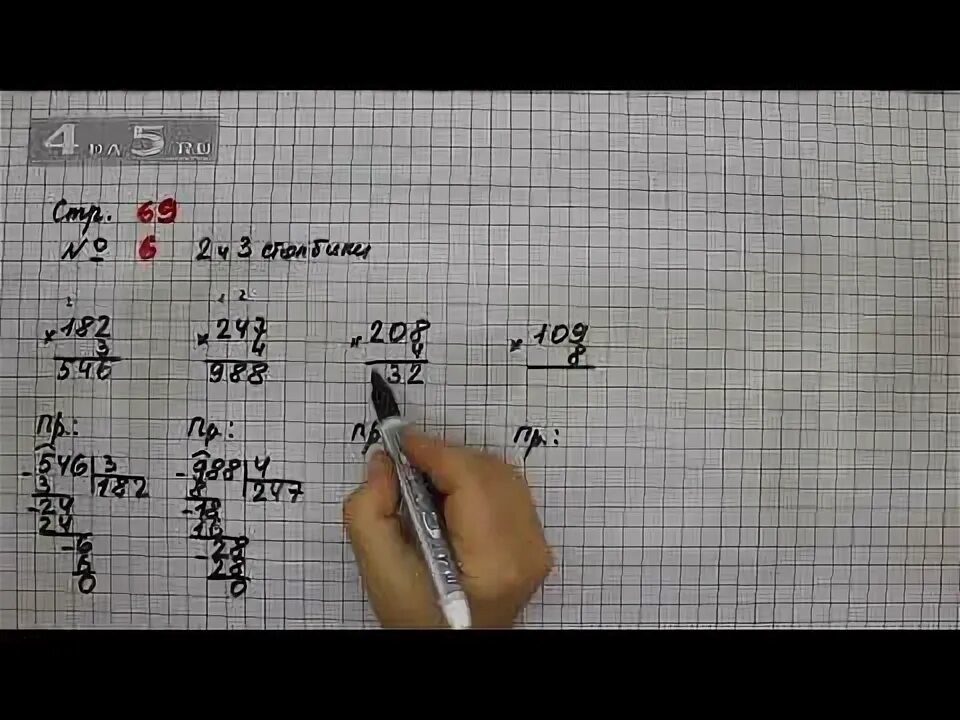 4 на 5 RU
Стр. 69
№ 6 2 и 3 столбики
2
×182
3
546
1 2
×247
4
988
×208
4
32
×109
8
Пр.:
-546 3
3 182
-24
24
-6
6
0
Пр.:
-988 4
8 247
-18
16
-28
28
0
Пр
Пр.: